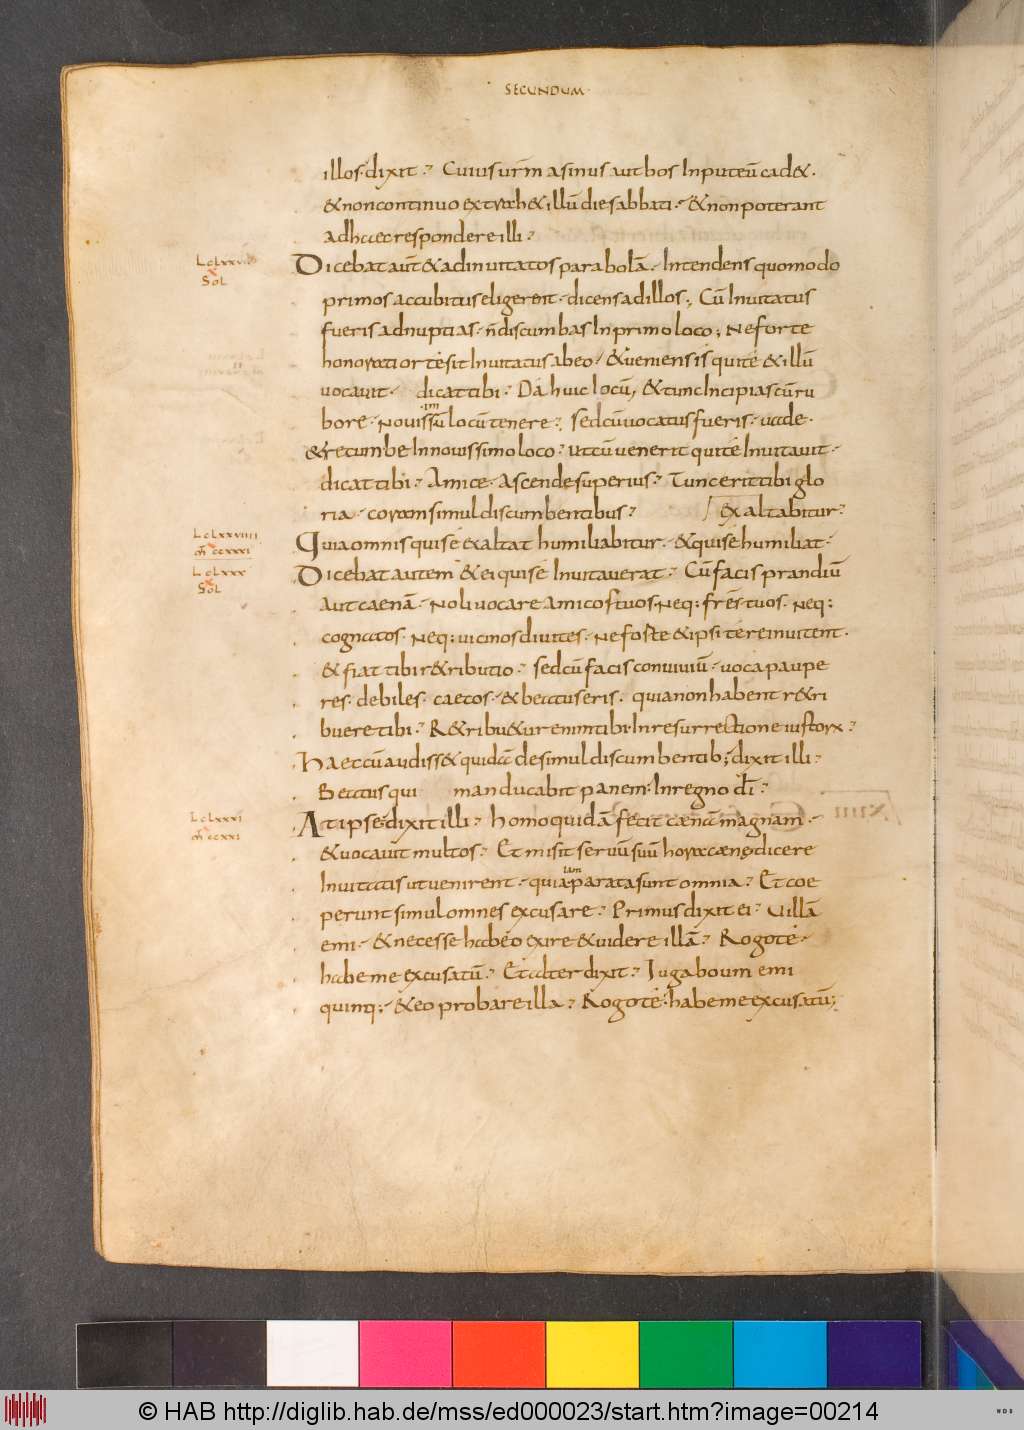 SECUNDUM·
illos· dixit· Cuius urm̄ asinus aut bos In puteū cad&·
& non continuo extrah& illū die sabbati· & non poterant
ad haec respondere illi·
Lc Lxxvii
Sol
Dicebat aūt & ad inuitatos parabolā· Intendens quomodo
primos accubitus eligerent· dicens ad illos; Cū Inuitatus
fueris ad nuptias· n̄ discumbas In primo loco; Ne forte
honoratior te sit Inuitatus ab eo· & ueniens is qui te & illū
uocauit· dicat tibi· Da huic locū, & tunc Incipias cū ru
bore· Nouissimū locū tenere; sed cū uocatus fueris· uade·
& recumbe In nouissimo loco· ut cū uenerit qui te Inuitauit·
dicat tibi· Amice· Ascende superius· Tunc erit tibi glo
ria· coram simul discumbentibus· exaltabitur·
Lc Lxxviiii
m̄ ccxxxi
Quia omnis qui se exaltat humiliabitur· & qui se humiliat·
Lc Lxxx
Sol
Dicebat autem & ei qui se Inuitauerat· Cū facis prandiū
Aut caenā· Noli uocare Amicos tuos· Neq: frēs tuos· Neq:
cognatos· Neq: uicinos diuites· Ne forte & ipsi te reinuitent·
& fiat tibi r&ributio· sed cū facis conuiuiū· uoca paupe
res· debiles· caecos· & beatus eris· quia non habent r&ri
buere tibi· R&ribu&ur enim tibi· In resurrectione iustorum·
Haec cū audiss& quidā de simul discumbentib; dixit illi·
Beatus qui manducabit panem· In regno dī·
Lc Lxxxi
m̄ ccxxi
At ipse dixit illi· homo quidā fecit cænā magnam·
& uocauit multos· Et misit seruū suū hora cænę dicere
Inuitatis ut uenirent· quia iam parata sunt omnia· Et coe
perunt simul omnes excusare· Primus dixit ei· Uillā
emi· & necesse habeo exire & uidere illā· Rogo te·
habe me excusatū· Et alter dixit· Iuga boum emi
quinq;· & eo probare illa· Rogo te· habe me excusatū;
© HAB http://diglib.hab.de/mss/ed000023/start.htm?image=00214